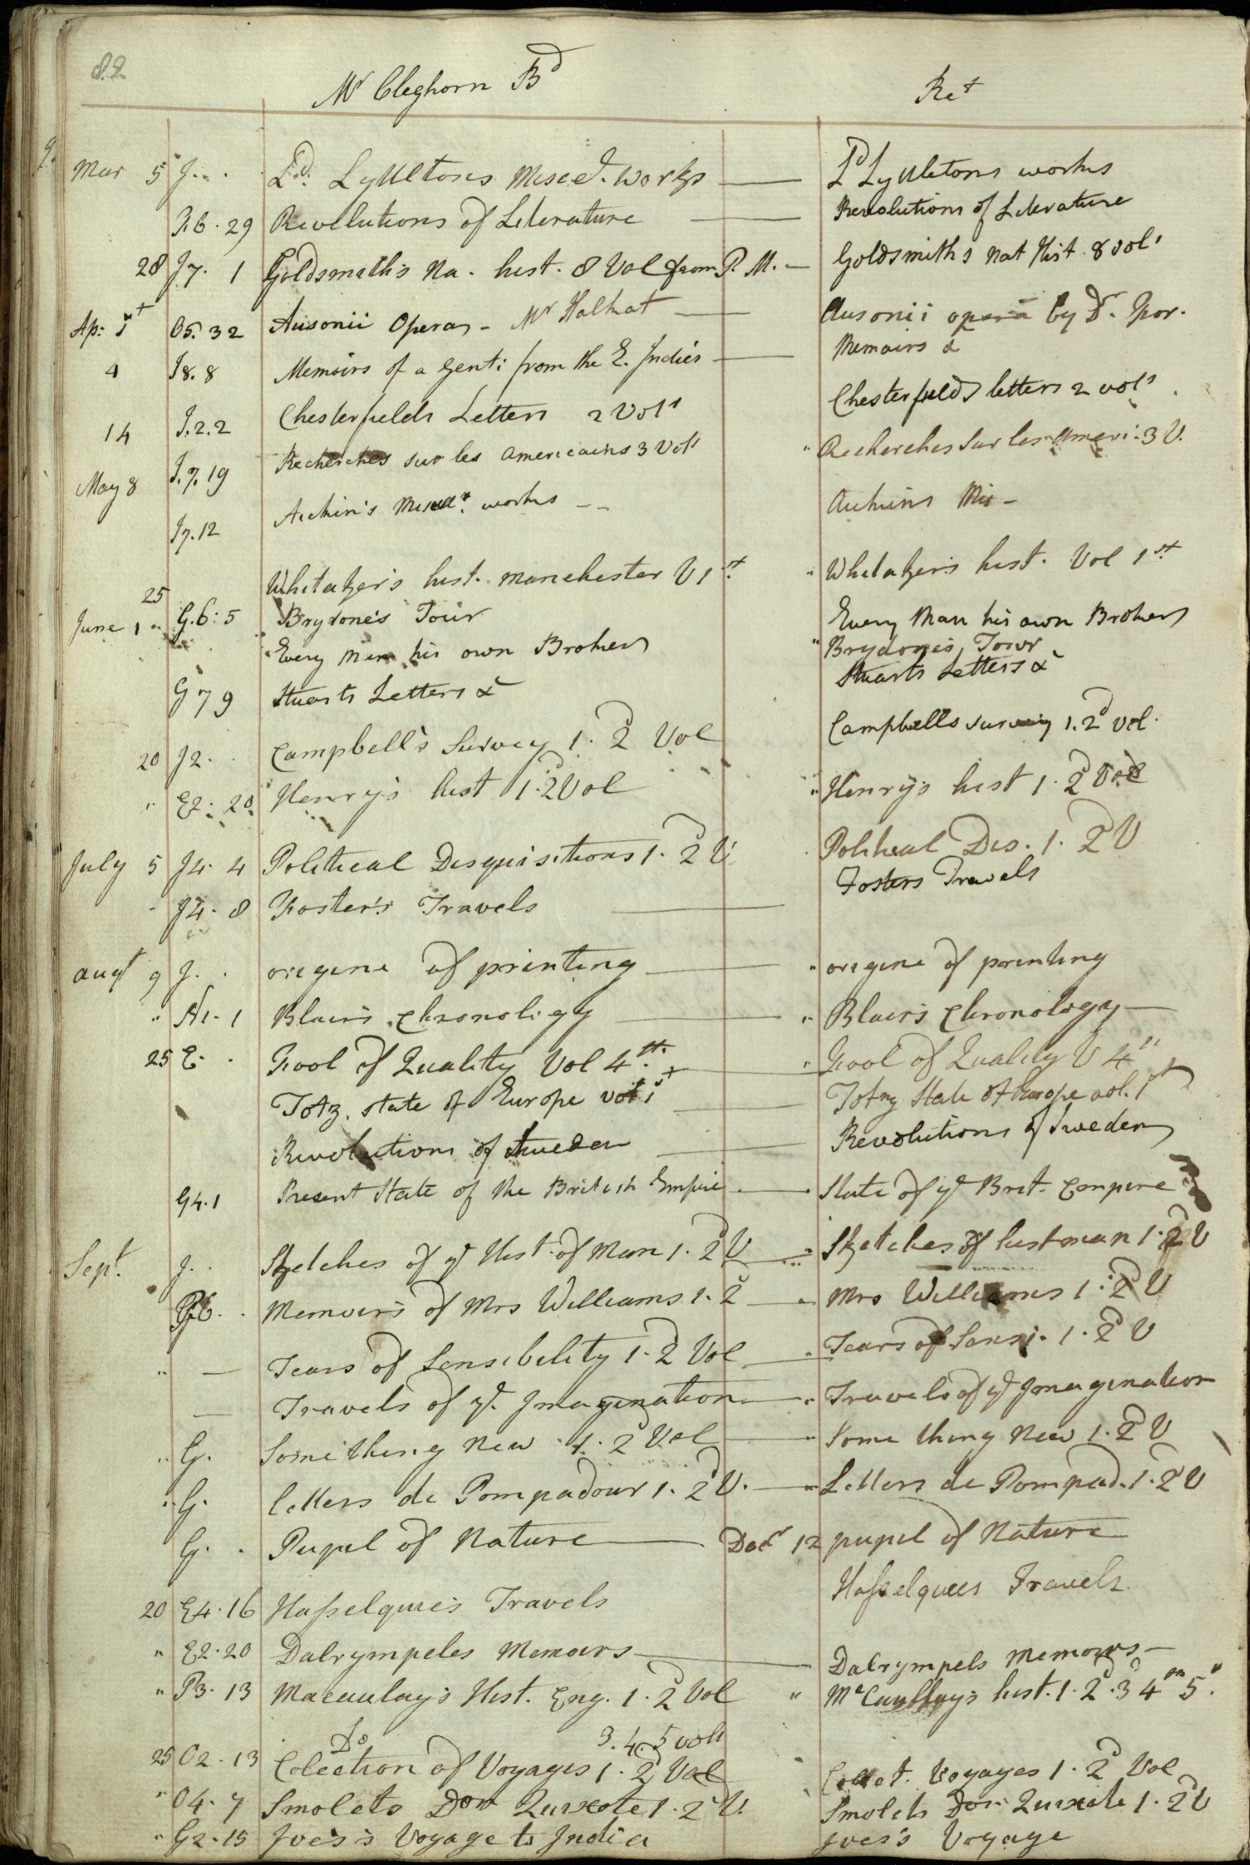 82
Mr Cleghorn Bd Ret
Mar 5 J. . Ld. Lyttltons Misce. works Ld Lyttletons works
R6. 29 Revolutions of Literature Revolutions of Literature
28 J7. 1 Goldsmith's Na. hist. 8 Vol from P. M. Goldsmiths Nat Hist 8 vols
Ap: 1st O5. 32 Ausonii Opera - Mr Halkat Ausonii opera by Dr. Gor.
4 I8. 8 Memoirs of a Gent: from the E. Indies Memoirs &
14 J.2.2 Chesterfields Letters 2 Vols Chesterfields letters 2 vols
May 8 J.7. 19 Recherches sur les Americains 3 Vols Recherches sur les Ameri. 3 V.
J7. 12 Aickin's Miscel. works Aickins Mis -
Whitaker's hist. Manchester V 1st. Whitakers hist. Vol 1st
25 Brydone's Tour Every Man his own Broker
June 1 G.6: 5 Every Man his own Broker Brydones Tour
G 7 9 Stuarts Letters & Stuarts Letters &
20 J2. Campbell's Survey 1. 2d Vol Campbells survey 1. 2d vol.
" E2. 20 Henry's hist 1. 2d Vol Henry's hist 1. 2d Vol
July 5 J4. 4 Political Disquisitions 1. 2d V. Political Dis. 1. 2d V
J4. 8 Foster's Travels Fosters Travels
augt 9 J. . origine of printing origine of printing
" A1. 1 Blairs Chronology Blairs Chronology
25 E. . Fool of Quality Vol 4th. Fool of Quality V 4th
Totz. state of Europe vol 1st Totzs State of Europe vol. 1st
Revolutions of Sweden Revolutions of Sweden
G4. 1 Present State of the British Empire State of ye Brit. Empire
Sept. J. . Sketches of ye Hist. of Man 1. 2d V Sketches of hist man 1. 2d V
Memoirs of Mrs Williams 1. 2d Mrs Williams 1. 2d V
" — Tears of Sensibility 1. 2d Vol Tears of Sensi. 1. 2d V
— Travels of ye. Imagination Travels of ye Imagination
" G. Something New 1. 2d Vol Some thing New 1. 2d V
" G. letters de Pompadour 1. 2d V. Letters de Pompad. 1. 2d V
G. . Pupil of Nature Decr 12 pupil of Nature
20 E4. 16 Hasselquies Travels Hasselquies Travels
" E2. 20 Dalrympeles Memoirs Dalrympels Memoirs
" P3. 13 Macaulay's Hist. Eng. 1. 2d Vol " McCaullay's hist. 1. 2d. 3d 4th 5th.
Do 3. 4. 5 vols
25 O2. 13 Colection of Voyages 1. 2d Vol Collect. Voyages 1. 2d Vol
" O4. 7 Smolets Don Quixote 1. 2d V. Smolets Don Quixote 1. 2d V
" G2. 15 Ives's Voyage to India Ives's Voyage